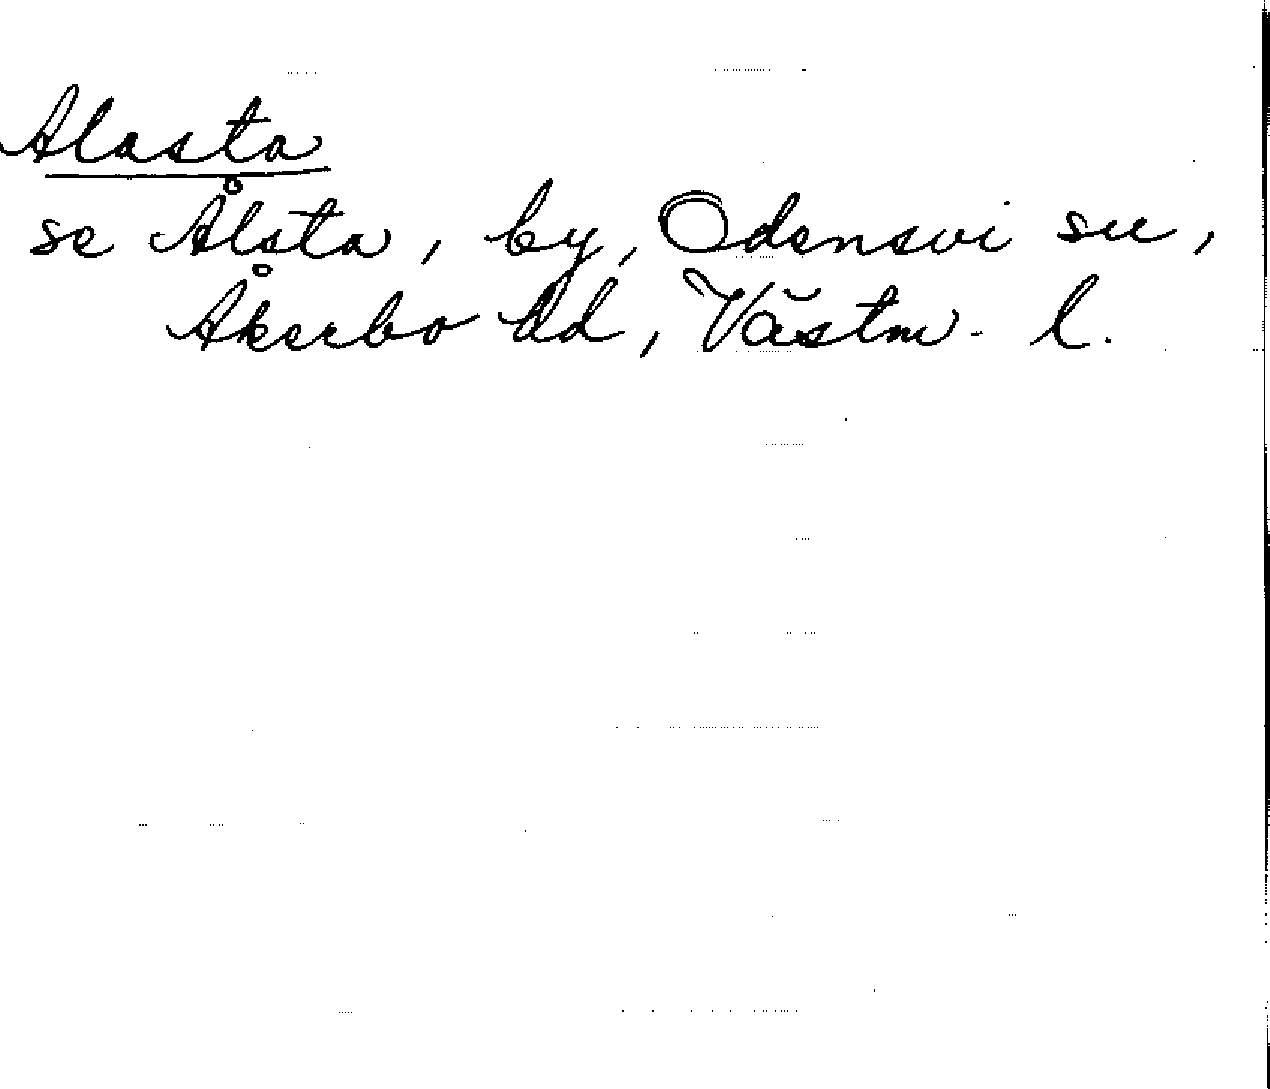 Alasta
se Ålsta, by, Odensvi sn,
Åkerbo hd, Västm. l.